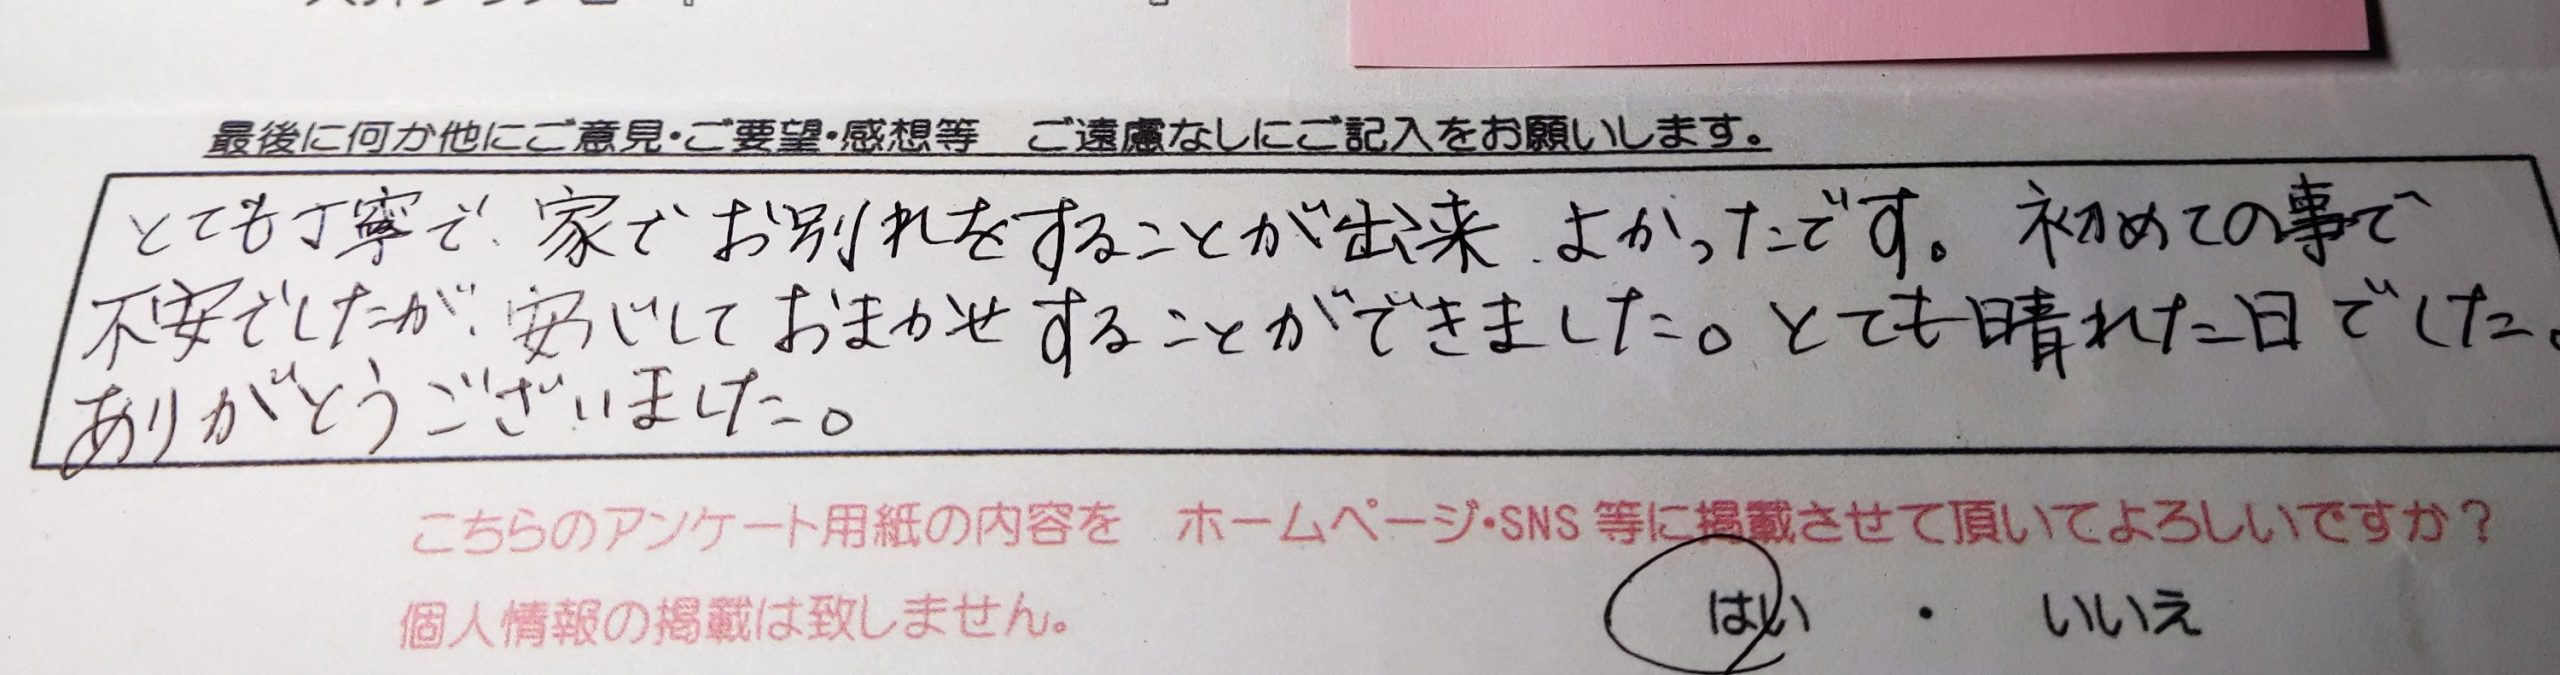 最後に何か他にご意見・ご要望・感想等　ご遠慮なしにご記入をお願いします。
とても丁寧で、家でお別れをすることが出来、よかったです。初めての事で
不安でしたが、安心しておまかせすることができました。とても晴れた日でした。
ありがとうございました。
こちらのアンケート用紙の内容を　ホームページ・SNS 等に掲載させて頂いてよろしいですか？
個人情報の掲載は致しません。
はい　・　いいえ